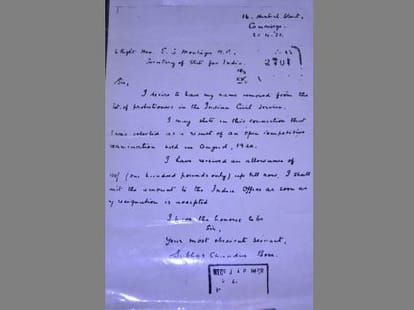 16, Herbert Street,
Cambridge.
22.4.21.
Right Hon. E. S. Montagu M.P.,
Secretary of State for India.
2701
Sir,
I desire to have my name removed from the
list of probationers in the Indian Civil Service.
I may state in this connection that
I was selected as a result of an open competitive
examination held in August, 1920.
I have received an allowance of
£100/- (one hundred pounds only) up till now. I shall
remit the amount to the India Office as soon as
my resignation is accepted.
I have the honour to be
Sir,
Your most obedient servant,
Subhas Chandra Bose.